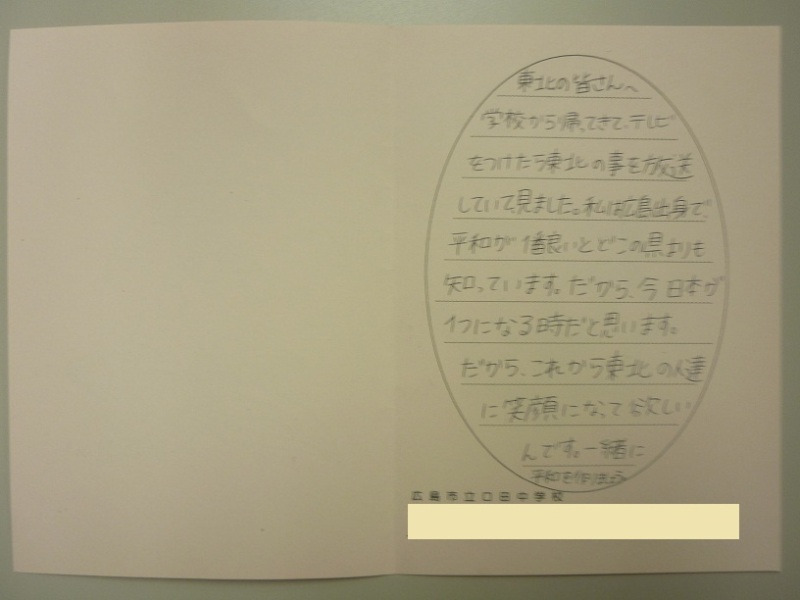 東北の皆さんへ
学校から帰ってきて、テレビ
をつけたら東北の事を放送
していて見ました。私は広島出身で、
平和が1番良いとどこの県よりも
知っています。だから、今日本が
1つになる時だと思います。
だから、これから東北の人達
に笑顔になって欲しい
んです。一緒に
平和を作りましょう。
広島市立口田中学校